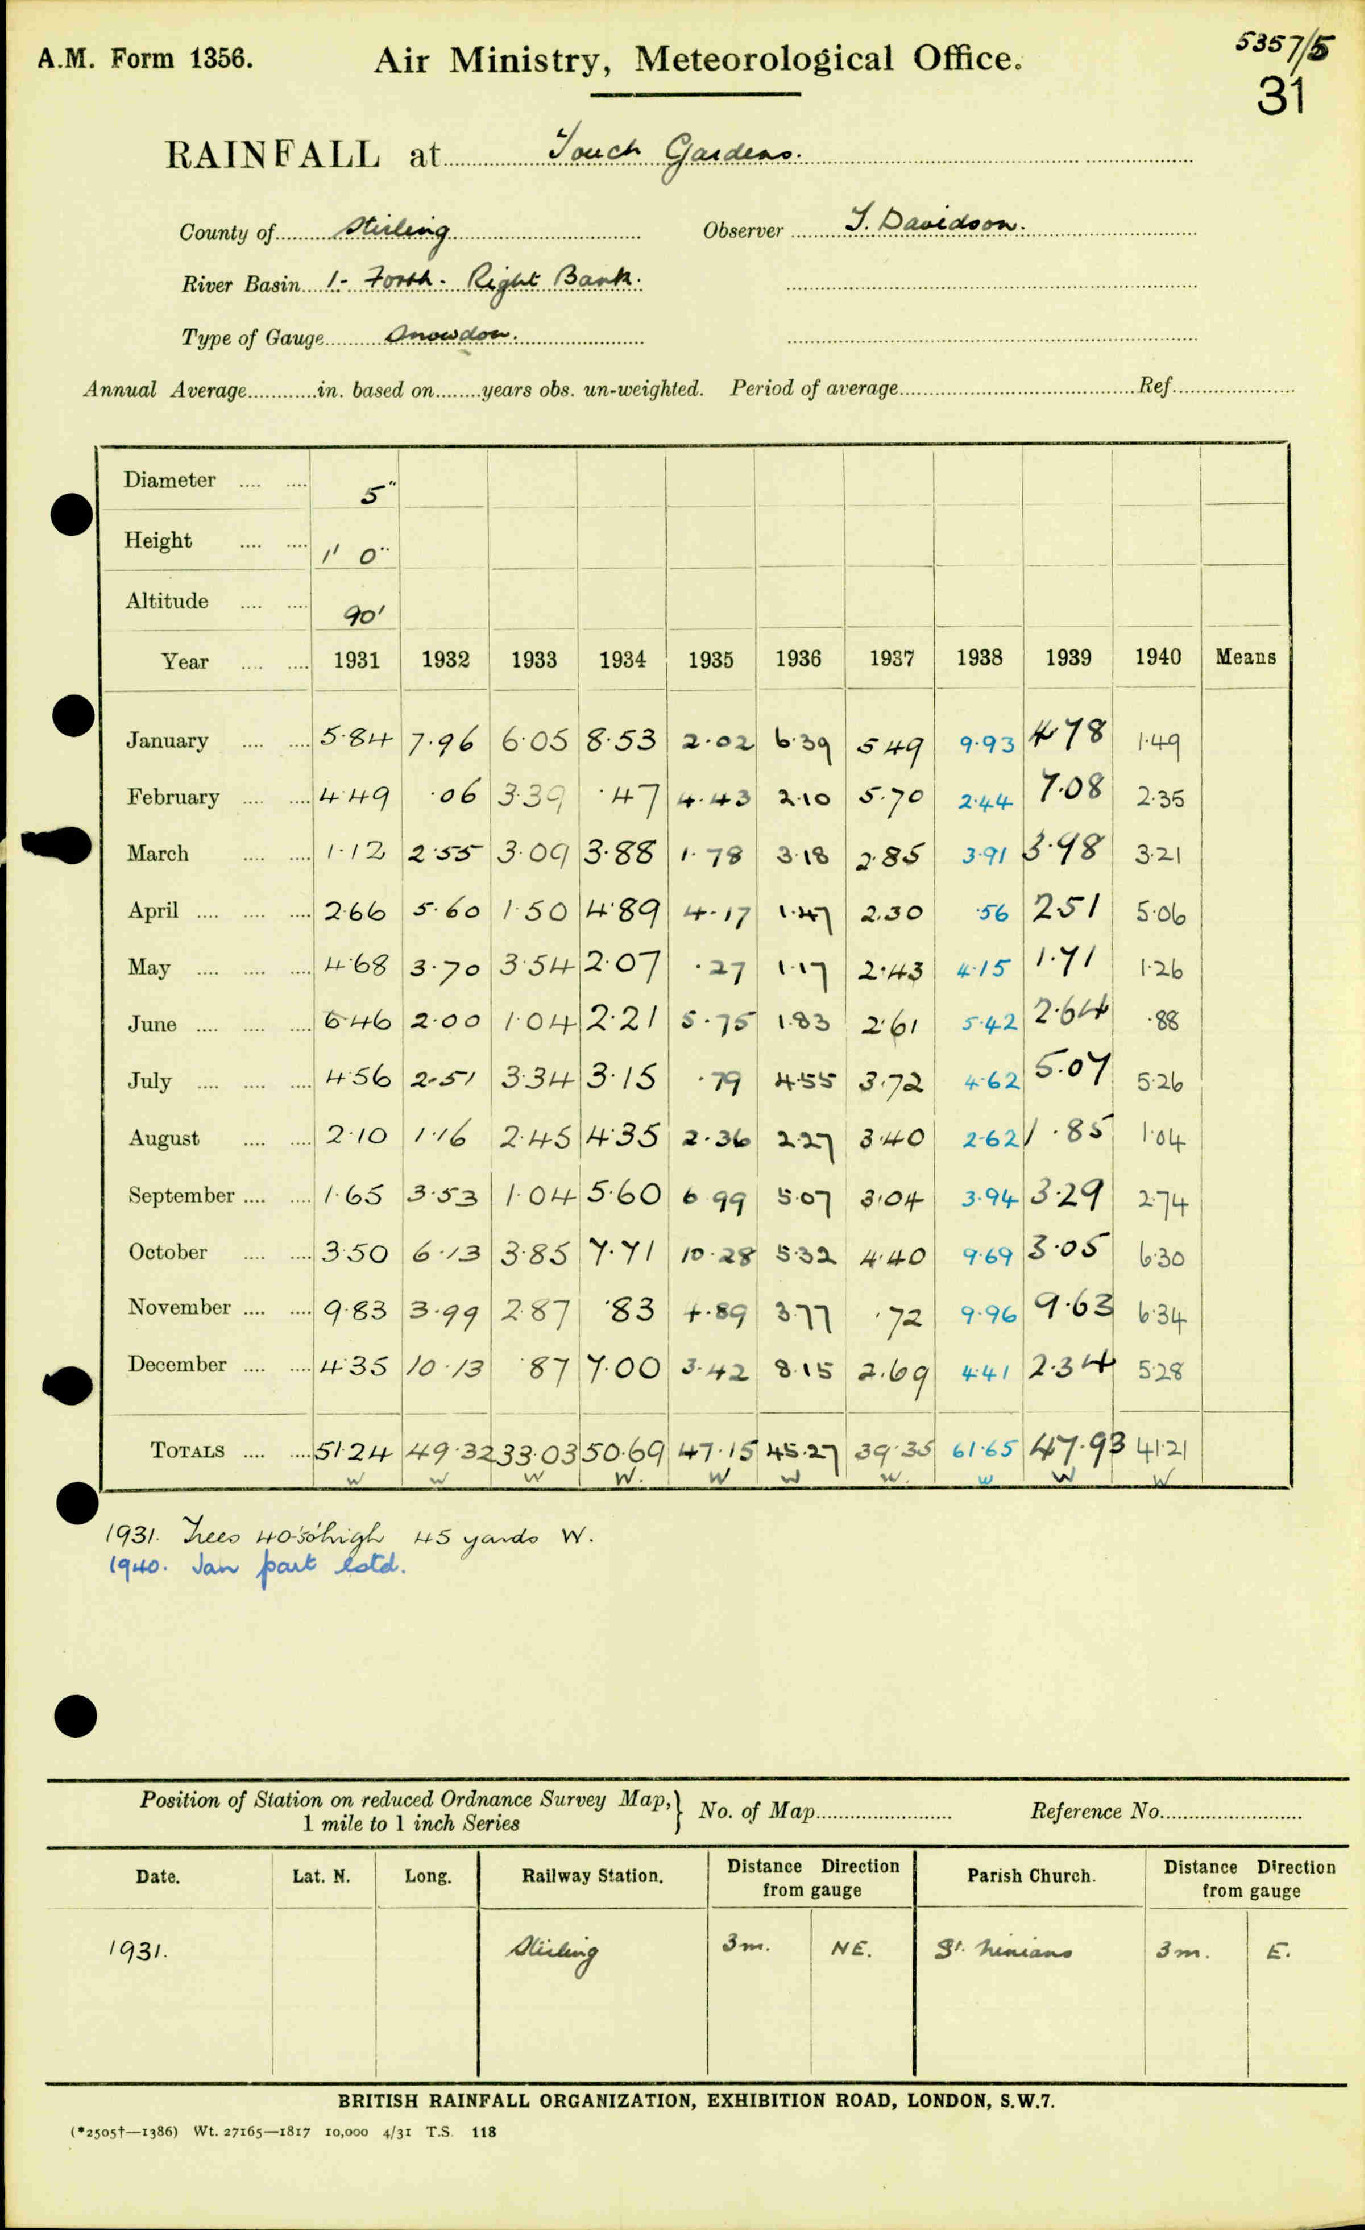 5357/5
A.M. Form 1356. Air Ministry, Meteorological Office.
31
RAINFALL at Touch Gardens.
County of Stirling Observer T. Davidson.
River Basin 1 - Forth - Right Bank.
Type of Gauge Snowdon.
Annual Average............in. based on........years obs. un-weighted. Period of average............Ref............
Diameter .... .... 5"
Height .... .... 1' 0"
Altitude .... .... 90'
Year .... .... 1931 1932 1933 1934 1935 1936 1937 1938 1939 1940 Means
January .... .... 5.84 7.96 6.05 8.53 2.02 6.39 5.49 9.93 4.78 1.49
February .... .... 4.49 .06 3.39 .47 4.43 2.10 5.70 2.44 7.08 2.35
March .... .... 1.12 2.55 3.09 3.88 1.78 3.18 2.85 3.91 3.98 3.21
April .... .... .... 2.66 5.60 1.50 4.89 4.17 1.47 2.30 .56 2.51 5.06
May .... .... .... 4.68 3.70 3.54 2.07 .27 1.17 2.43 4.15 1.71 1.26
June .... .... .... 6.46 2.00 1.04 2.21 5.75 1.83 2.61 5.42 2.64 .88
July .... .... .... 4.56 2.51 3.34 3.15 .79 4.55 3.72 4.62 5.07 5.26
August .... .... 2.10 1.16 2.45 4.35 2.36 2.27 3.40 2.62 1.85 1.04
September .... .... 1.65 3.53 1.04 5.60 6.99 5.07 3.04 3.94 3.29 2.74
October .... .... 3.50 6.13 3.85 7.71 10.28 5.32 4.40 9.69 3.05 6.30
November .... .... 9.83 3.99 2.87 .83 4.89 3.77 .72 9.96 9.63 6.34
December .... .... 4.35 10.13 .87 7.00 3.42 8.15 2.69 4.41 2.34 5.28
TOTALS .... .... 51.24 49.32 33.03 50.69 47.15 45.27 39.35 61.65 47.93 41.21
W W W W. W W W. W W W
1931. Trees 40'-50' high 45 yards W.
1940. Jan part estd.
Position of Station on reduced Ordnance Survey Map,} No. of Map............ Reference No............
1 mile to 1 inch Series
Date. Lat. N. Long. Railway Station. Distance Direction from gauge Parish Church. Distance Direction from gauge
1931. Stirling 3m. NE. St. Ninians 3m. E.
BRITISH RAINFALL ORGANIZATION, EXHIBITION ROAD, LONDON, S.W.7.
(*2505†—1386) Wt. 27165—1817 10,000 4/31 T.S. 118